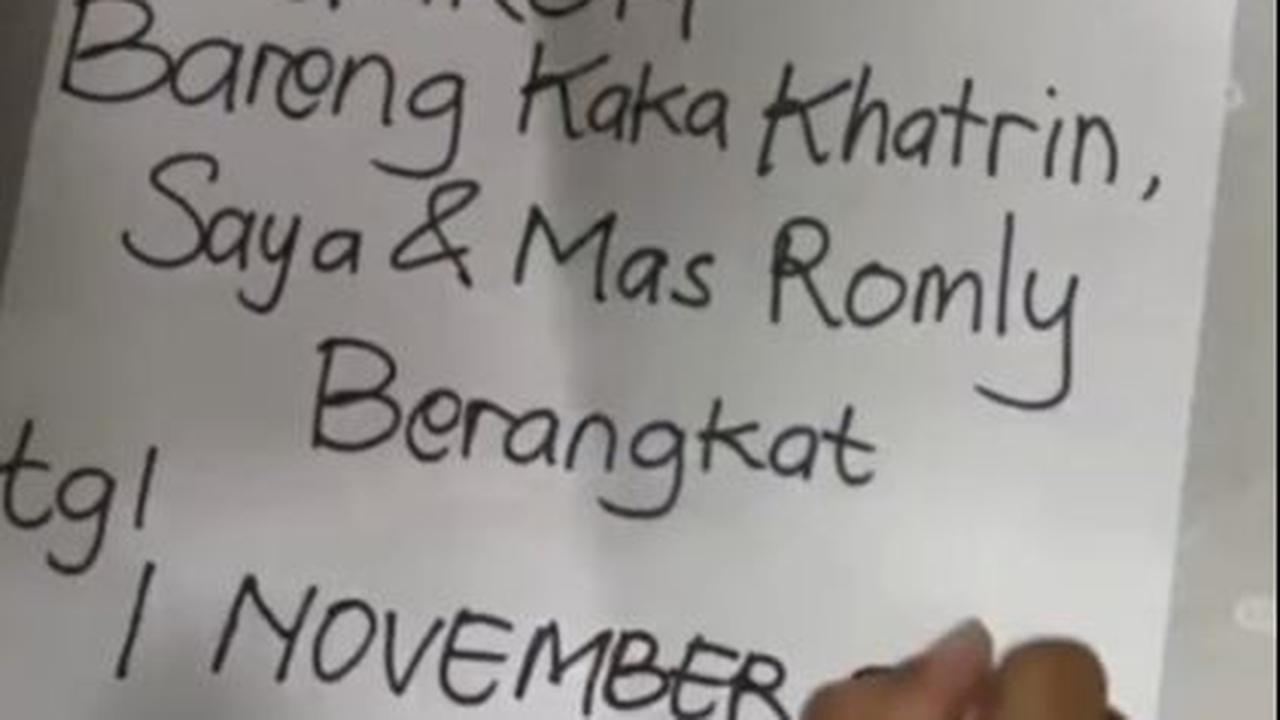 Bareng Kaka Khatrin,
Saya & Mas Romly
Berangkat
tgl
1 NOVEMBER